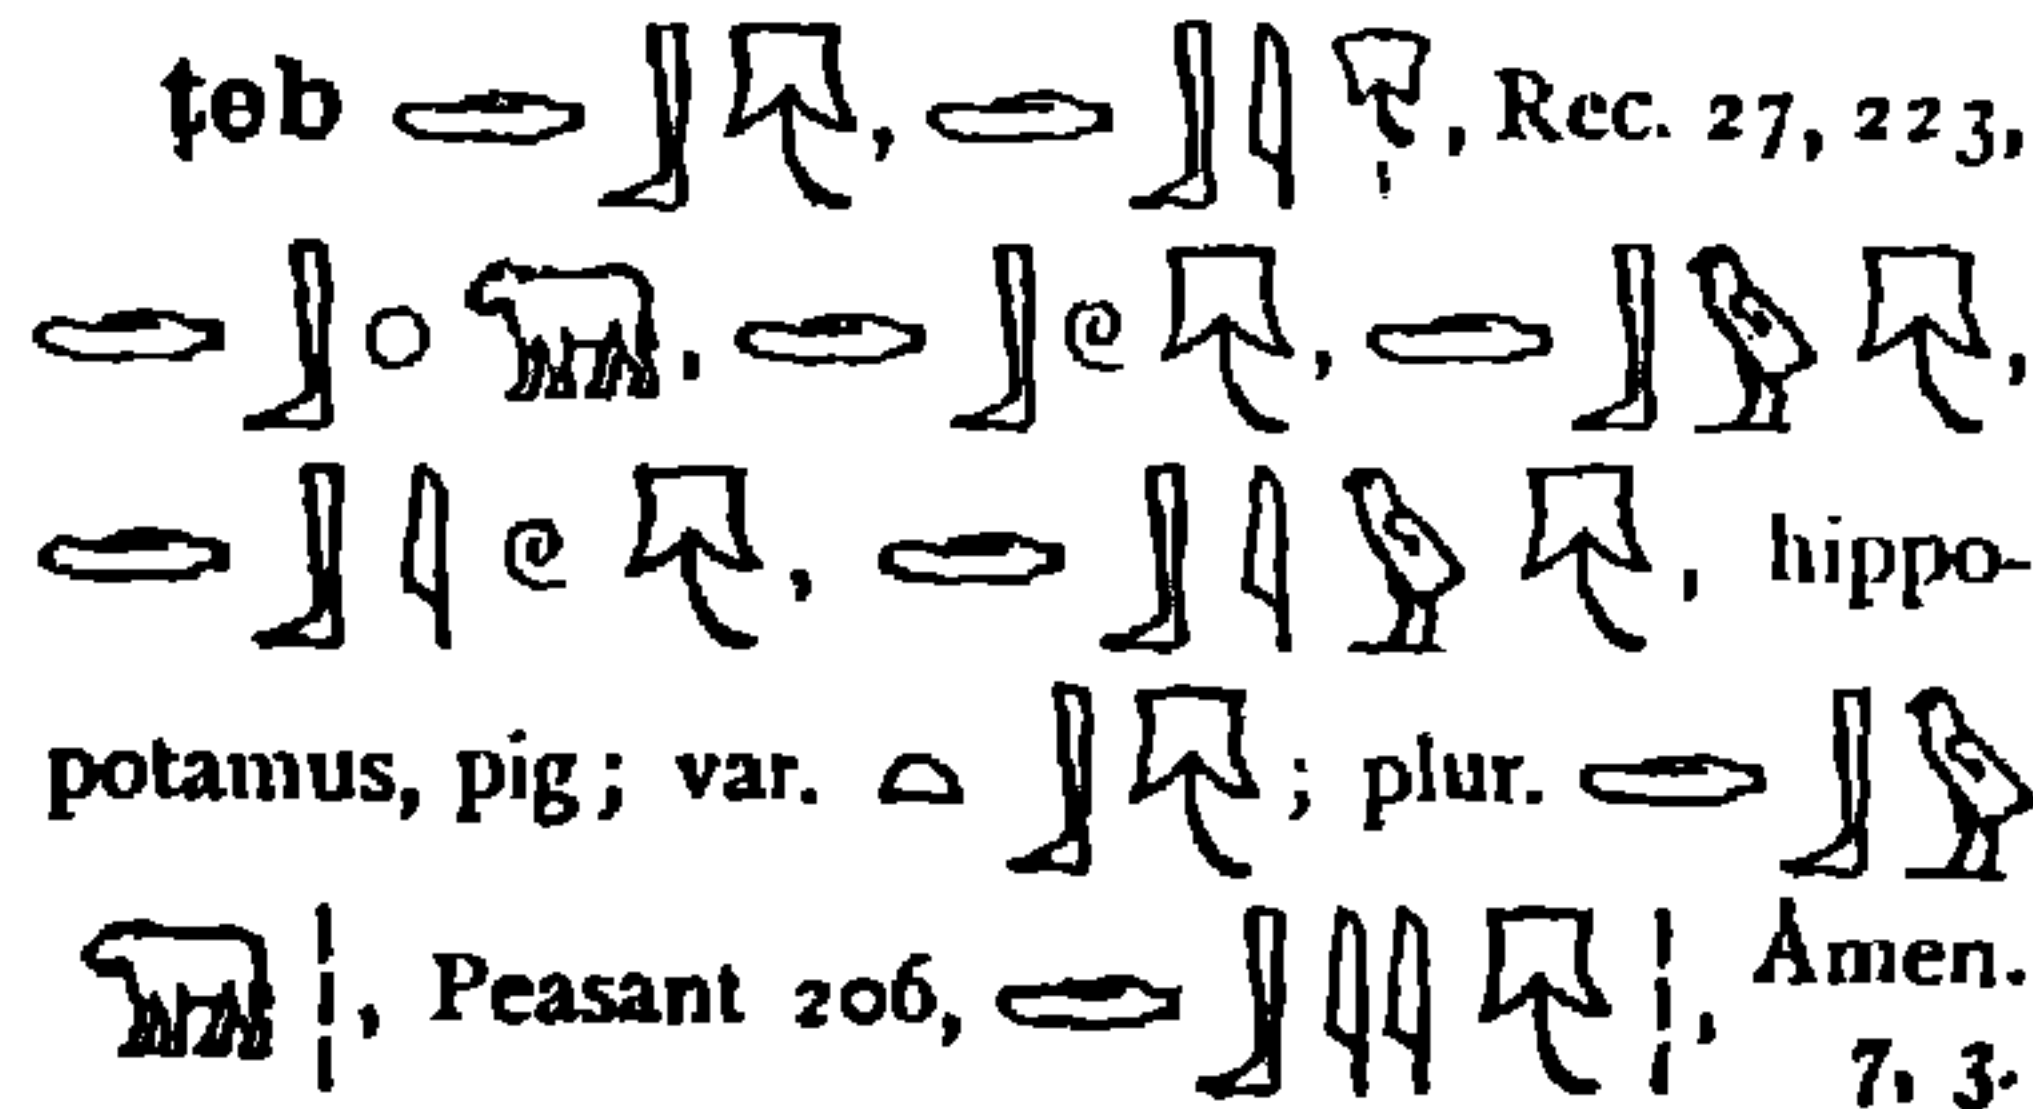 ṭeb 𓂧𓃀𓄛, 𓂧𓃀𓇋𓄛𓏤, Rec. 27, 223,
𓂧𓃀𓈒𓃯, 𓂧𓃀𓏲𓄛, 𓂧𓃀𓅱𓄛,
𓂧𓃀𓇋𓏲𓄛, 𓂧𓃀𓇋𓅱𓄛, hippo-
potamus, pig; var. 𓏏𓃀𓄛; plur. 𓂧𓃀𓅱
𓃯𓏪, Peasant 206, 𓂧𓃀𓇋𓇋𓄛𓏪, Amen.
7, 3.